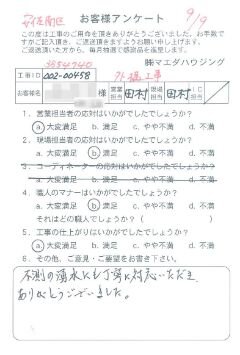 安佐南区 お客様アンケート 9/9
この度は工事のご用命を頂きありがとうございました。お手数で
すがご記入頂き、ご返送頂きますようお願い申し上げます。
ご返送頂いた方から、毎月抽選で感謝品を進呈します。
3854740 ㈱マエダハウジング
工事ID 002-00458 外構工事
お客様名 営業担当 田村 現場担当 田村 IC担当
1．営業担当者の応対はいかがでしたでしょうか？
ⓐ大変満足 b. 満足 c. やや不満 d. 不満
2．現場担当者の応対はいかがでしたでしょうか？
a. 大変満足 ⓑ満足 c. やや不満 d. 不満
3．コーディネーターの応対はいかがでしたでしょうか？
a. 大変満足 b. 満足 c. やや不満 d. 不満
4．職人のマナーはいかがでしたでしょうか？
a. 大変満足 ⓑ満足 c. やや不満 d. 不満
それはどの職人でしょうか？（ ）
5．工事の仕上がりはいかがでしたでしょうか？
ⓐ大変満足 b. 満足 c. やや不満 d. 不満
6．その他、ご意見・ご要望をお書き下さい。
不測の湧水にも丁寧に対応いただき、
ありがとうございました。